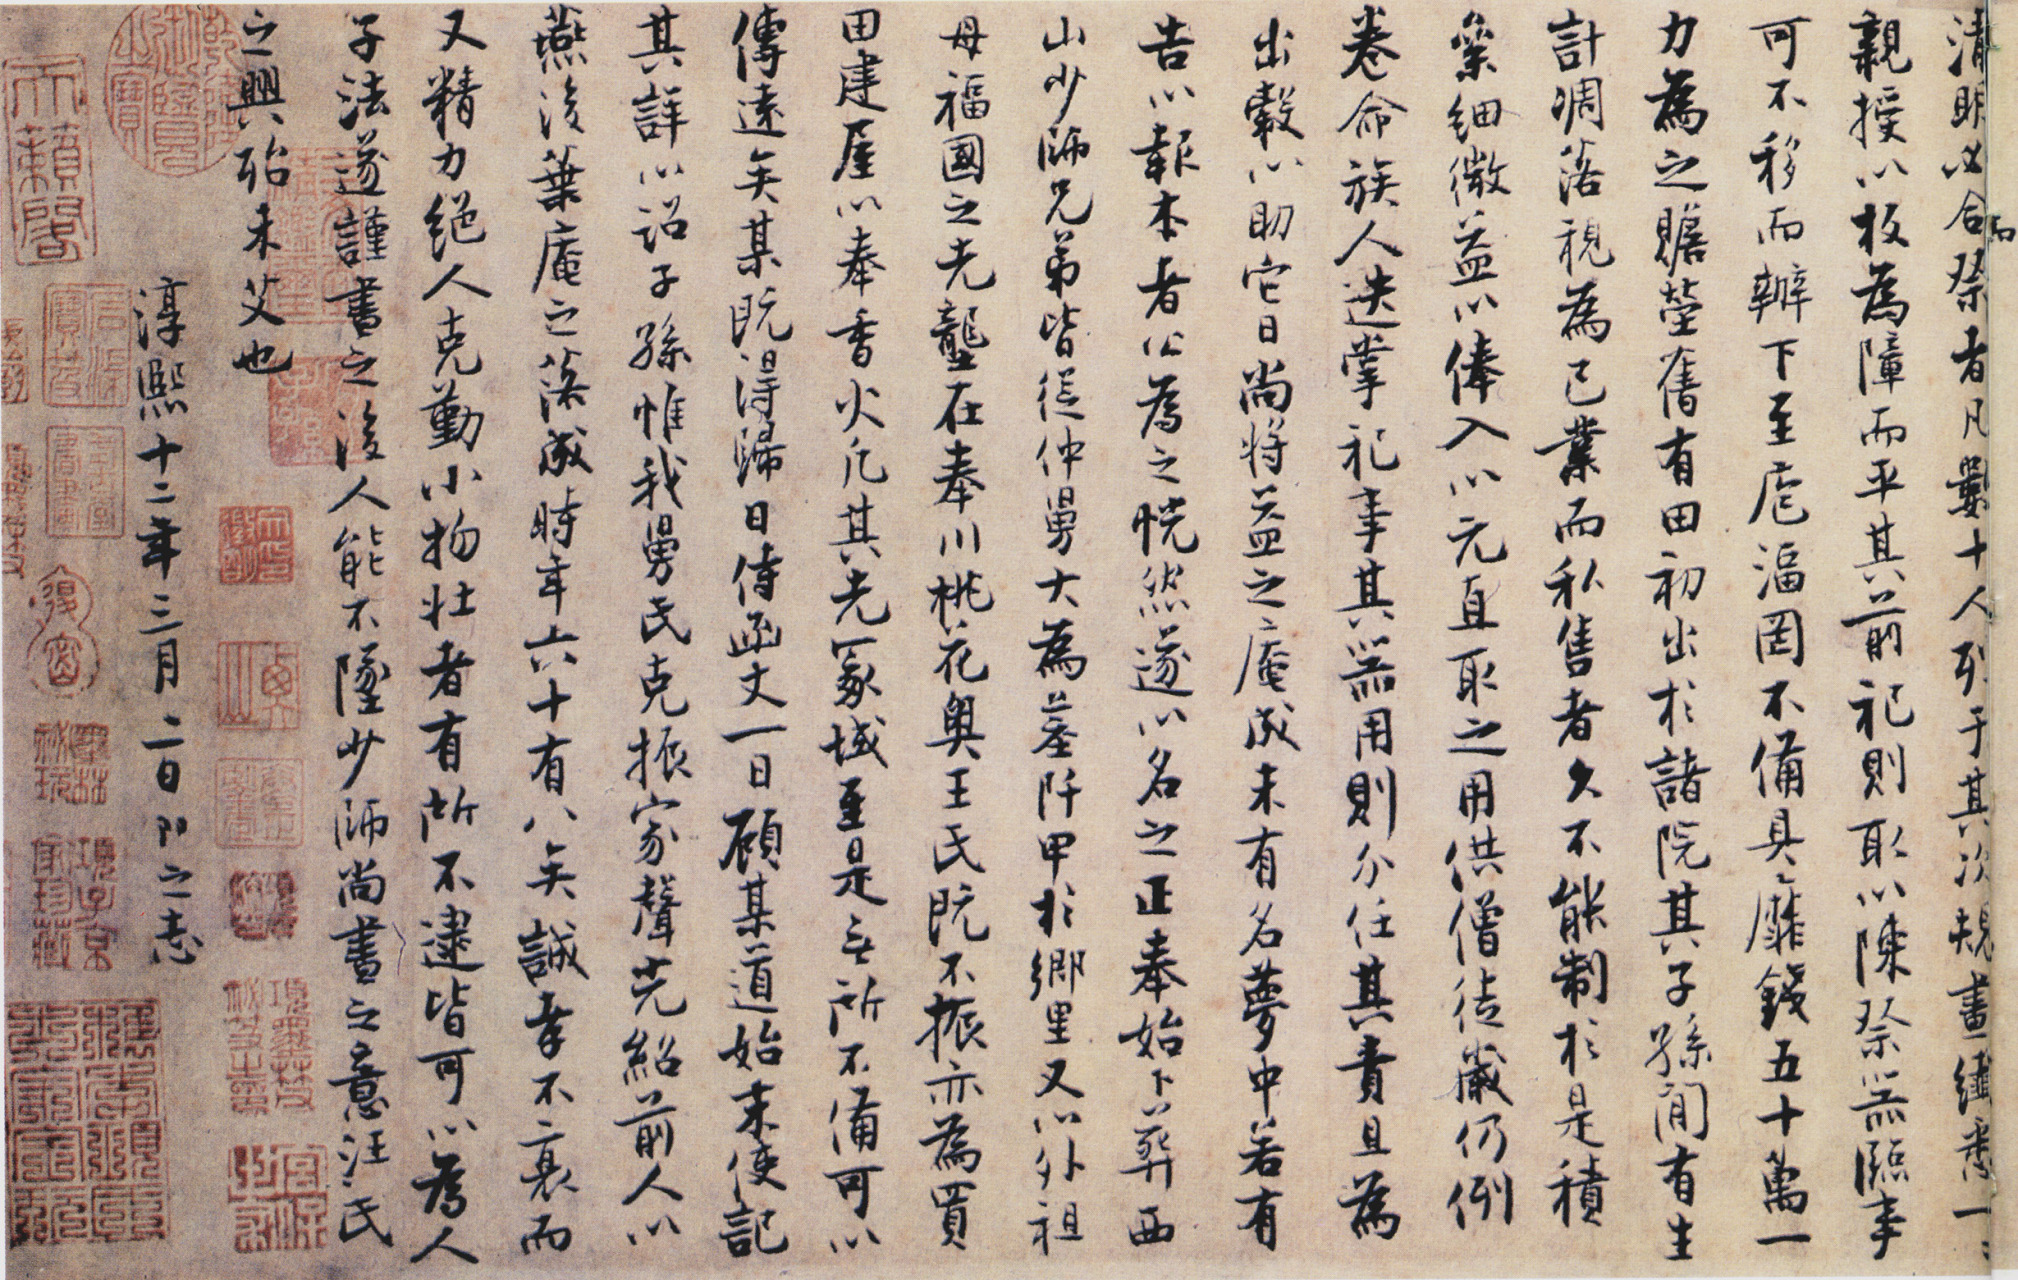 清明必合而祭者凡數十人列于其次規畫纖悉一一
親授以板為障而平其前祀則取以陳祭器臨事
可不移而辦下至庖湢罔不備具靡錢五十萬一
力為之贍塋舊有田初出於諸院其子孫閒有生
計凋落視為己業而私售者久不能制於是積
絫細微益以俸入以元直取之用供僧徒歲仍例
卷命族人迭掌祀事其器用則分任其責且為
出穀以助它日尚將益之庵成未有名夢中若有
告以報本者公為之恍然遂以名之正奉始卜葬西
山少師兄弟皆從仲舅大為菴阡甲於鄉里又以外祖
母福國之先壟在奉川桃花奧王氏既不振亦為買
田建屋以奉香火凡其先冢域至是無所不備可以
傳遠矣某既得歸日侍函丈一日顧某道始末使記
其詳以詔子孫惟我舅氏克振家聲光紹前人以
燕後葉庵之落成時年六十有八矣誠孝不衰而
又精力絕人克勤小物壯者有所不逮皆可以為人
子法遂謹書之後人能不墜少師尚書之意汪氏
之興殆未艾也
淳熙十二年三月二日 之志
乾隆御覽之寶
天籟閣
項子京家珍藏
墨林祕玩
項墨林祕笈之印